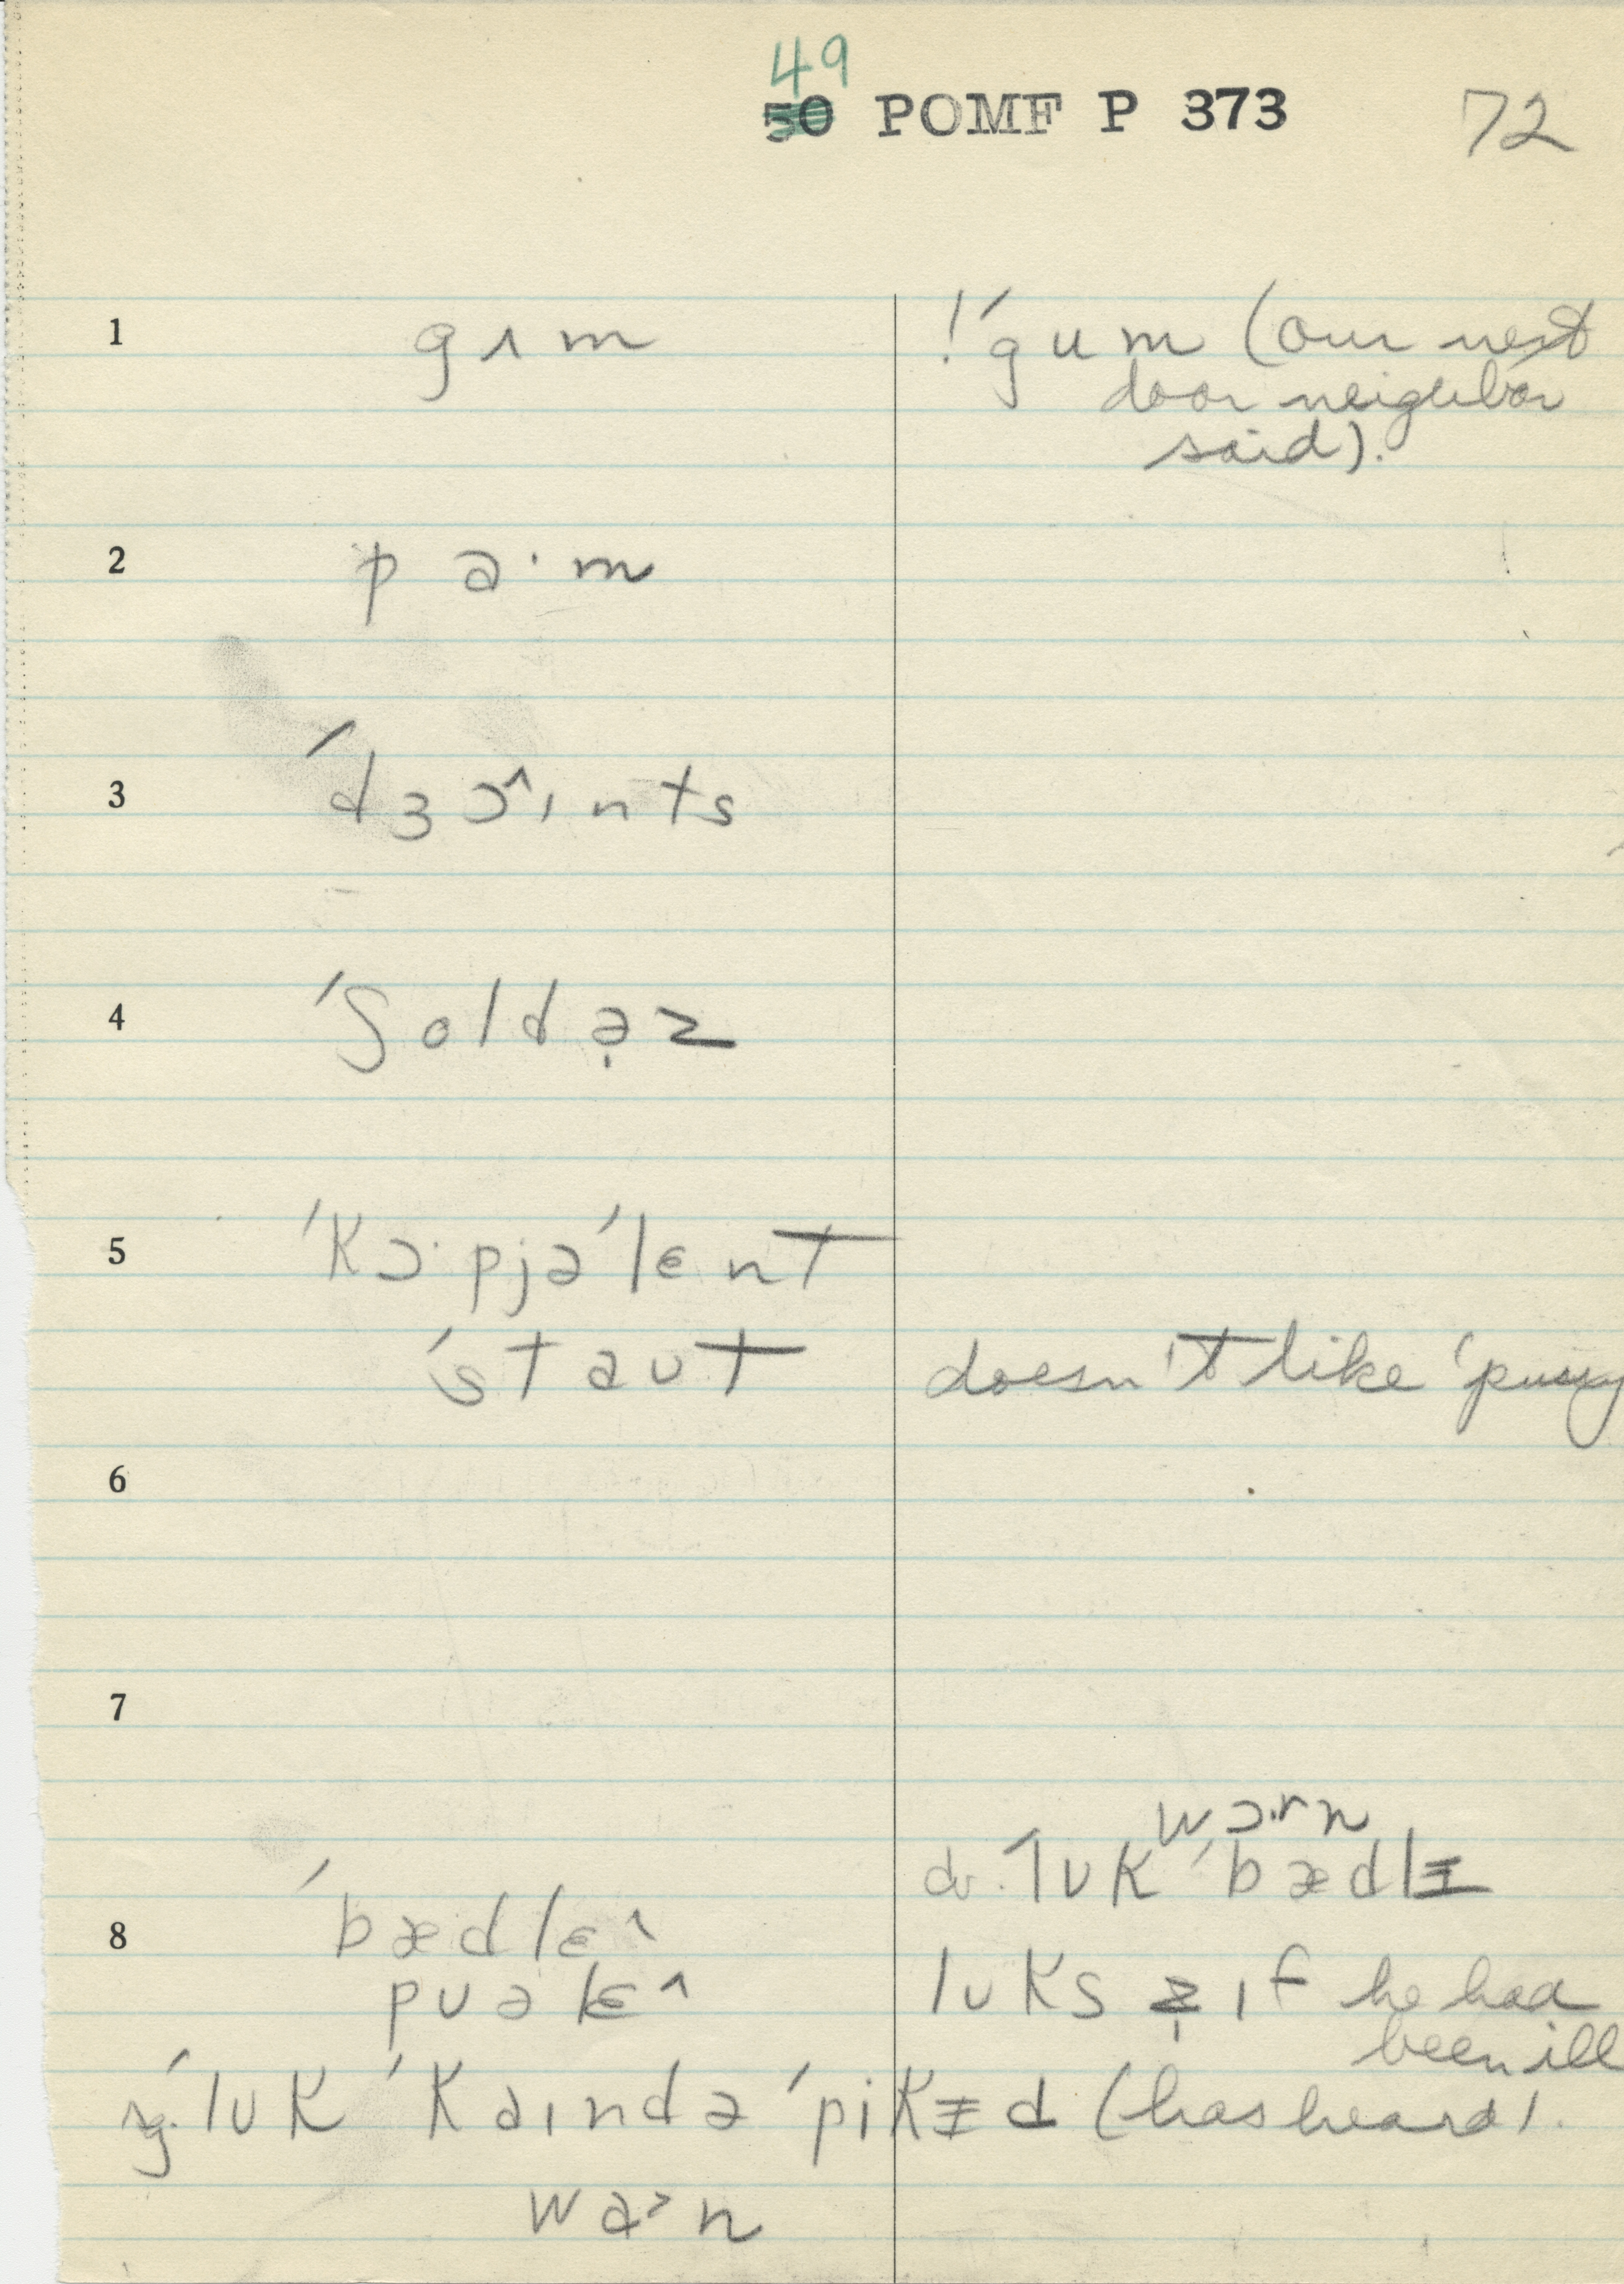 49
50 POMF P 373 72
1 gʌm !ˈgum (our next
door neighbor
said).
2 pa·m
3 ˈdʒɔ^ɪnts
4 ˈʃoldə̣z
5 ˈkɔ·pjəˈlɛnt
ˈstaʊt doesn't like ˈpussy
6
7
wɔ·rn
ˈlʊk ˈbædlɪ
8 ˈbædlɛ^
pʊəlɛ^ lʊks ɪf he had
been ill
ˈlʊk ˈkaɪndə ˈpikɪd (has heard).
waɔn